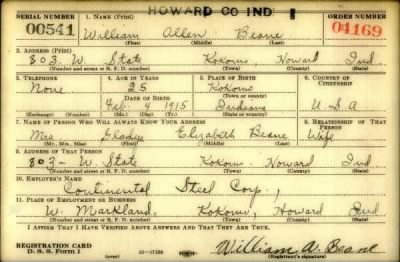 HOWARD CO IND 1
SERIAL NUMBER 1. NAME (Print) ORDER NUMBER
00541 William Allen Beane 04169
(First) (Middle) (Last)
2. ADDRESS (Print)
803 W. State Kokomo, Howard Ind.
(Number and street or R. F. D. number) (Town) (County) (State)
3. TELEPHONE 4. AGE IN YEARS 5. PLACE OF BIRTH 6. COUNTRY OF CITIZENSHIP
None 25 Kokomo
DATE OF BIRTH (Town or county)
Feb. 4 1915 Indiana U S A
(Exchange) (Number) (Mo.) (Day) (Yr.) (State or country)
7. NAME OF PERSON WHO WILL ALWAYS KNOW YOUR ADDRESS 8. RELATIONSHIP OF THAT PERSON
Mrs Gladys Elizabeth Beane Wife
(Mr., Mrs., Miss) (First) (Middle) (Last)
9. ADDRESS OF THAT PERSON
803 - W. State Kokomo Howard Ind.
(Number and street or R. F. D. number) (Town) (County) (State)
10. EMPLOYER'S NAME
Continental Steel Corp.,
11. PLACE OF EMPLOYMENT OR BUSINESS
W. Markland, Kokomo, Howard Ind
(Number and street or R. F. D. number) (Town) (County) (State)
I AFFIRM THAT I HAVE VERIFIED ABOVE ANSWERS AND THAT THEY ARE TRUE.
REGISTRATION CARD
D. S. S. Form 1 (over) William A. Beane
(Registrant's signature)